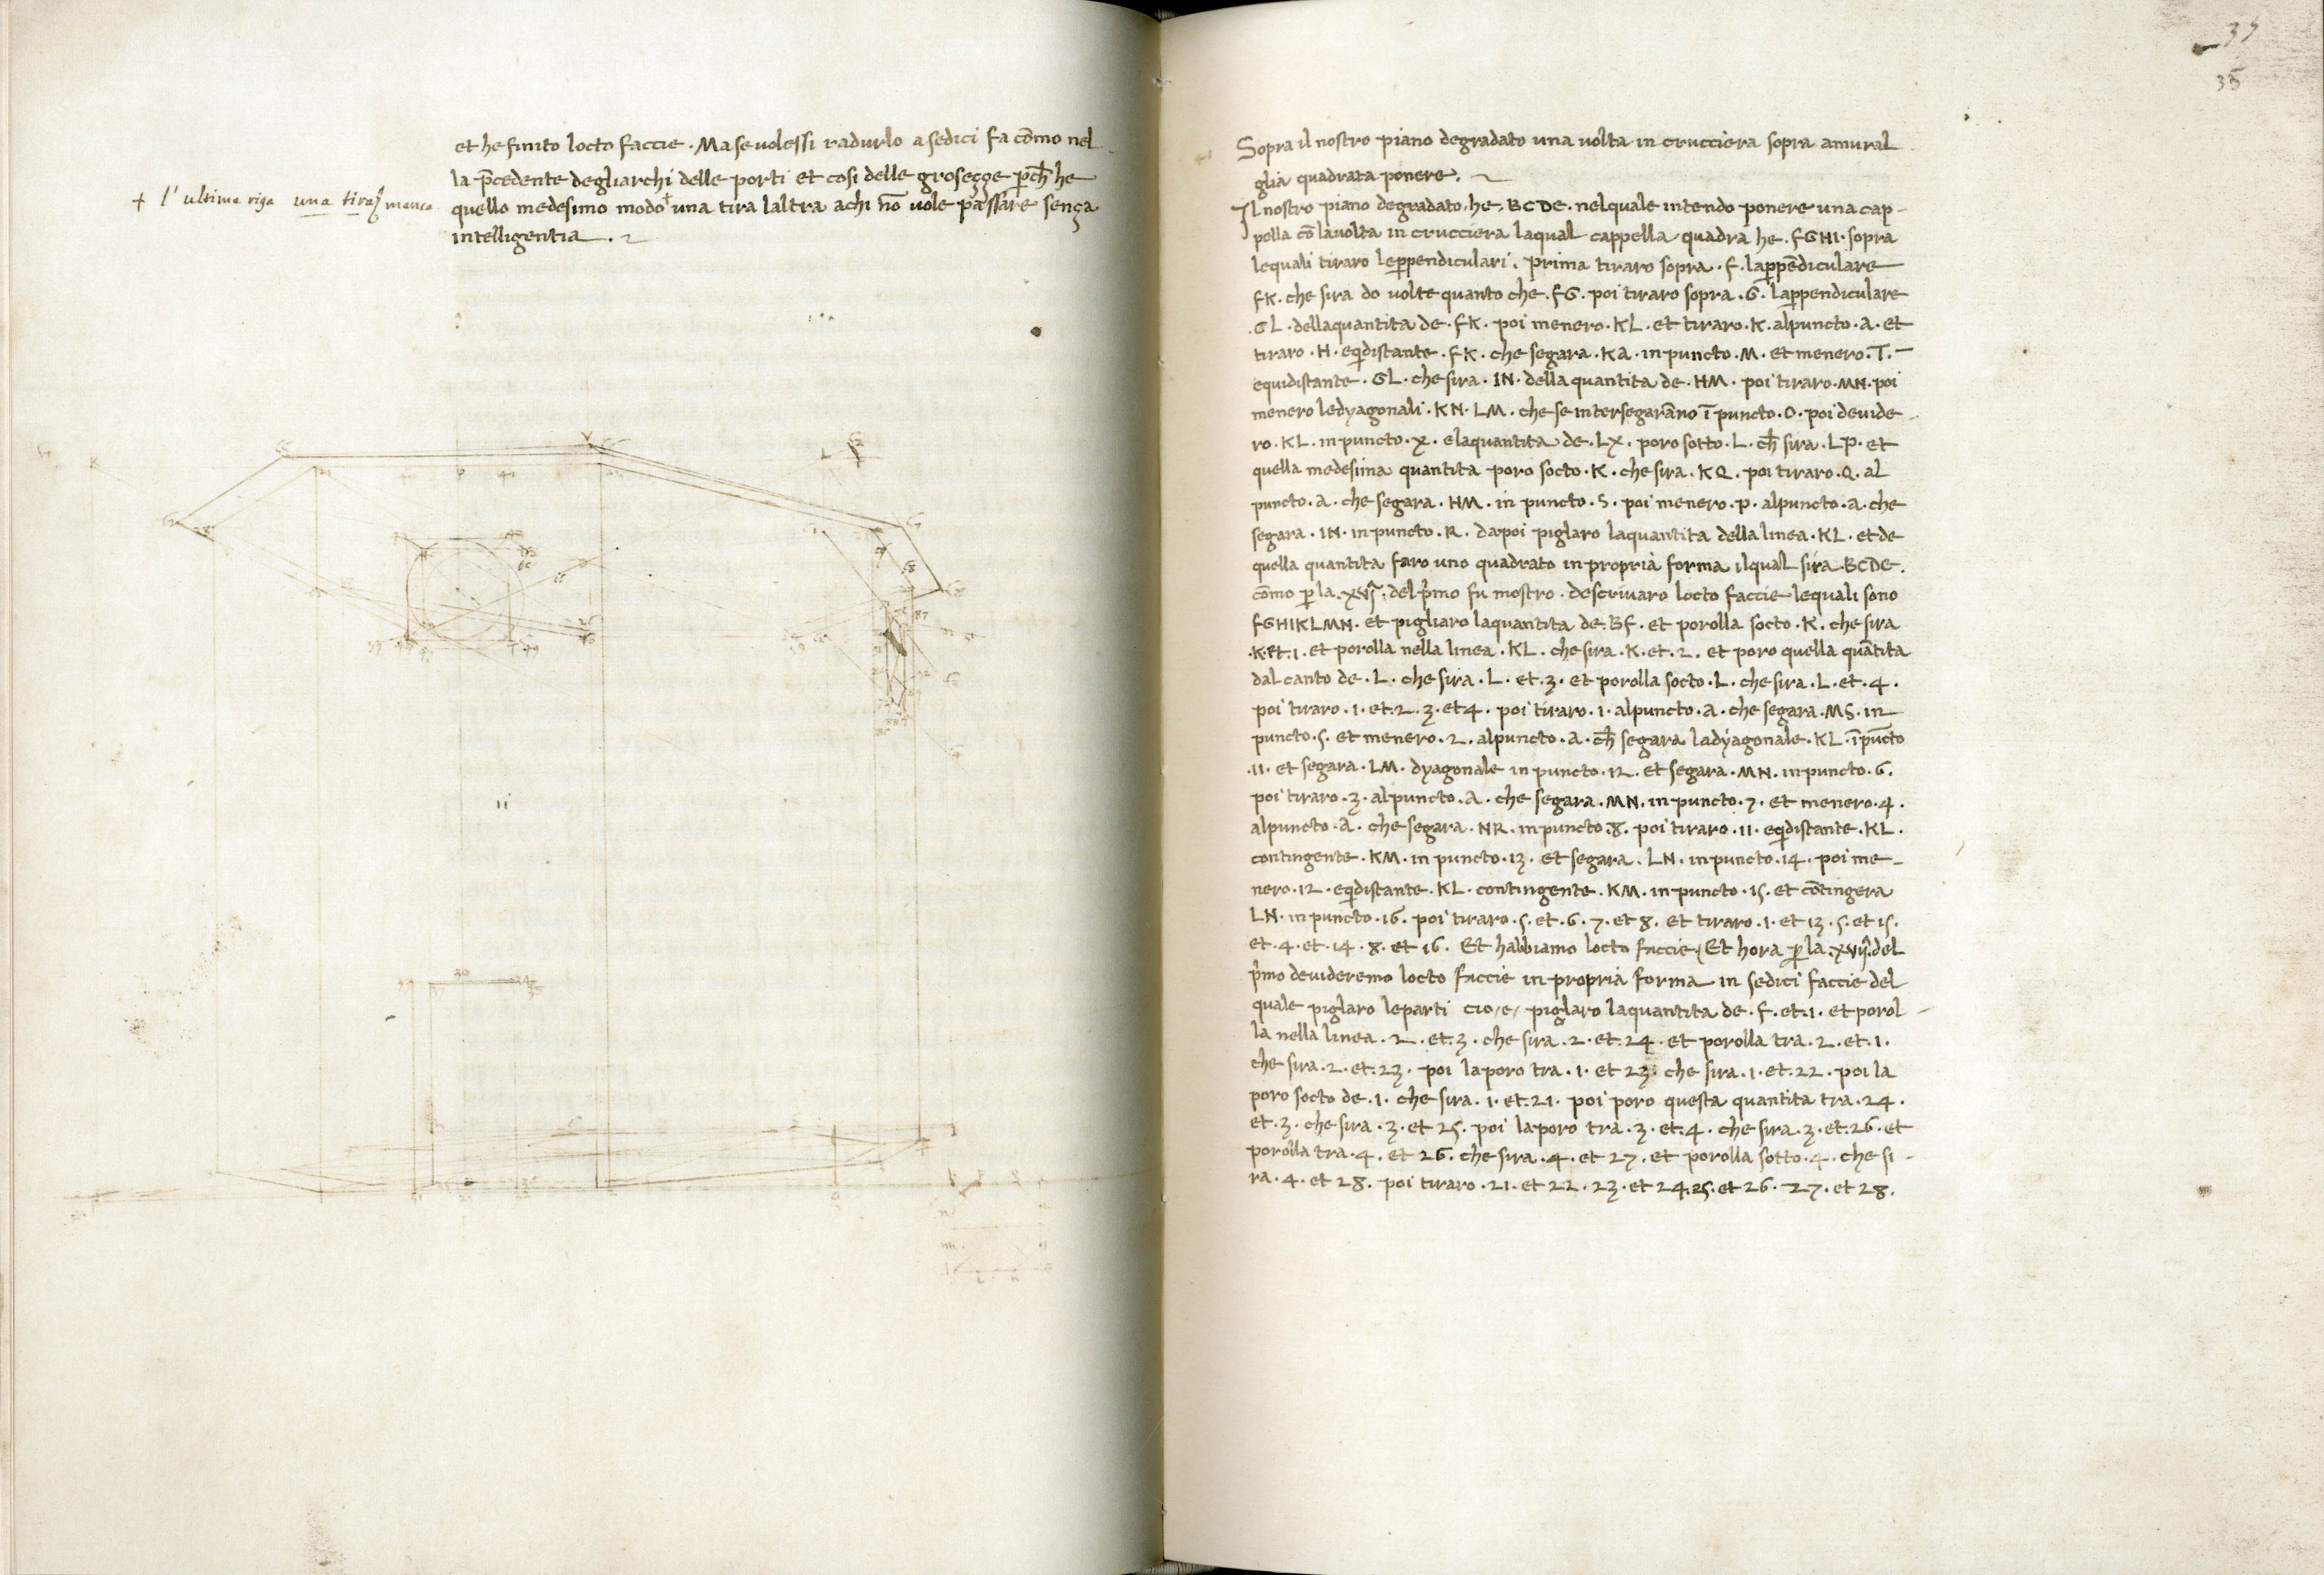 et he finito locto faccie . Ma se volessi radurlo a sedici fa cōmo nel
la p̄cedente degliarchi delle porti et cosi delle groseçe p̄ch̄ he
quello medesimo modo † una tira laltra achi nō vole passare sença
intelligentia .
+ l' ultima riga una tira manca
37
35
Sopra il nostro piano degradato una volta in crucciera sopra amural
glia quadrata ponere .
Il nostro piano degradato . he . BCDE . nelquale intendo ponere una cap-
pella cō lavolta in crucciera laqual cappella quadra he . FGHI . sopra
lequali tiraro leperpendiculari . prima tiraro sopra . F . laperpēdiculare
FK . che sira do volte quanto che . FG . poi tiraro sopra . G . laperpendiculare
.GL . dellaquantita de . FK . poi menero . KL . et tiraro . K . alpuncto . A . et
tiraro . H . eq̄distante . FK . che segara . KA . in puncto . M . et menero . I .
equidistante . GL . che sira . IN . della quantita de . HM . poi tiraro . MN . poi
menero ledyagonali . KN . LM . che se intersegarāno ī puncto . O . poi devide-
ro . KL . in puncto . X . elaquantita de . LX . poro sotto . L . ch̄ sira . LP . et
quella medesima quantita poro socto . K . che sira . KQ . poi tiraro . Q . al
puncto . A . che segara . HM . in puncto . S . poi menero . P . alpuncto . A . che
segara . IN . in puncto . R . dapoi piglaro laquantita della linea . KL . et de
quella quantita faro uno quadrato in propria forma ilqual sira . BCDE .
cōmo p̄ la . xvȷ̄ . del p̄mo fu mostro . descrivaro locto faccie lequali sono
FGHIKLMN . et pigliaro laquantita de . BF . et porolla socto . K . che sira
.K . et . 1 . et porolla nella linea . KL . che sira . K . et . 2 . et poro quella quātita
dal canto de . L . che sira . L . et . 3 . et porolla socto . L . che sira . L . et . 4 .
poi tiraro . 1 . et . 2 . 3 . et 4 . poi tiraro . 1 . alpuncto . A . che segara . MS . in
puncto . 5 . et menero . 2 . alpuncto . A . ch̄ segara ladyagonale . KL . ī pūcto
.11 . et segara . LM . dyagonale in puncto . 12 . et segara . MN . in puncto . 6 .
poi tiraro . 3 . alpuncto . A . che segara . MN . in puncto . 7 . et menero . 4 .
alpuncto . A . che segara . NR . in puncto . 8 . poi tiraro . 11 . eq̄distante . KL .
contingente . KM . in puncto . 13 . et segara . LN . in puncto . 14 . poi me-
nero . 12 . eq̄distante . KL . contingente . KM . in puncto . 15 . et cōtingera
LN . in puncto . 16 . poi tiraro . 5 . et . 6 . 7 . et 8 . et tiraro . 1 . et 13 . 5 . et 15 .
et . 4 . et . 14 . 8 . et 16 . Et habbiamo locto faccie . Et hora p̄ la . xvij̄ . del
p̄mo devideremo locto faccie in propria forma in sedici faccie del
quale piglaro leparti cio/e/ piglaro laquantita de . F . et . 1 . et porol-
la nella linea . 2 . et . 3 . che sira . 2 . et . 24 . et porolla tra . 2 . et . 1 .
che sira . 2 . et . 23 . poi laporo tra . 1 . et 23 . che sira . 1 . et . 22 . poi la
poro socto de . 1 . che sira . 1 . et . 21 . poi poro questa quantita tra . 24 .
et . 3 . che sira . 3 . et 25 . poi laporo tra . 3 . et . 4 . che sira . 3 . et . 26 . et
porolla tra . 4 . et 26 . che sira . 4 . et 27 . et porolla sotto . 4 . che si-
ra . 4 . et 28 . poi tiraro . 21 . et 22 . 23 . et 24 . 25 . et 26 . 27 . et 28 .